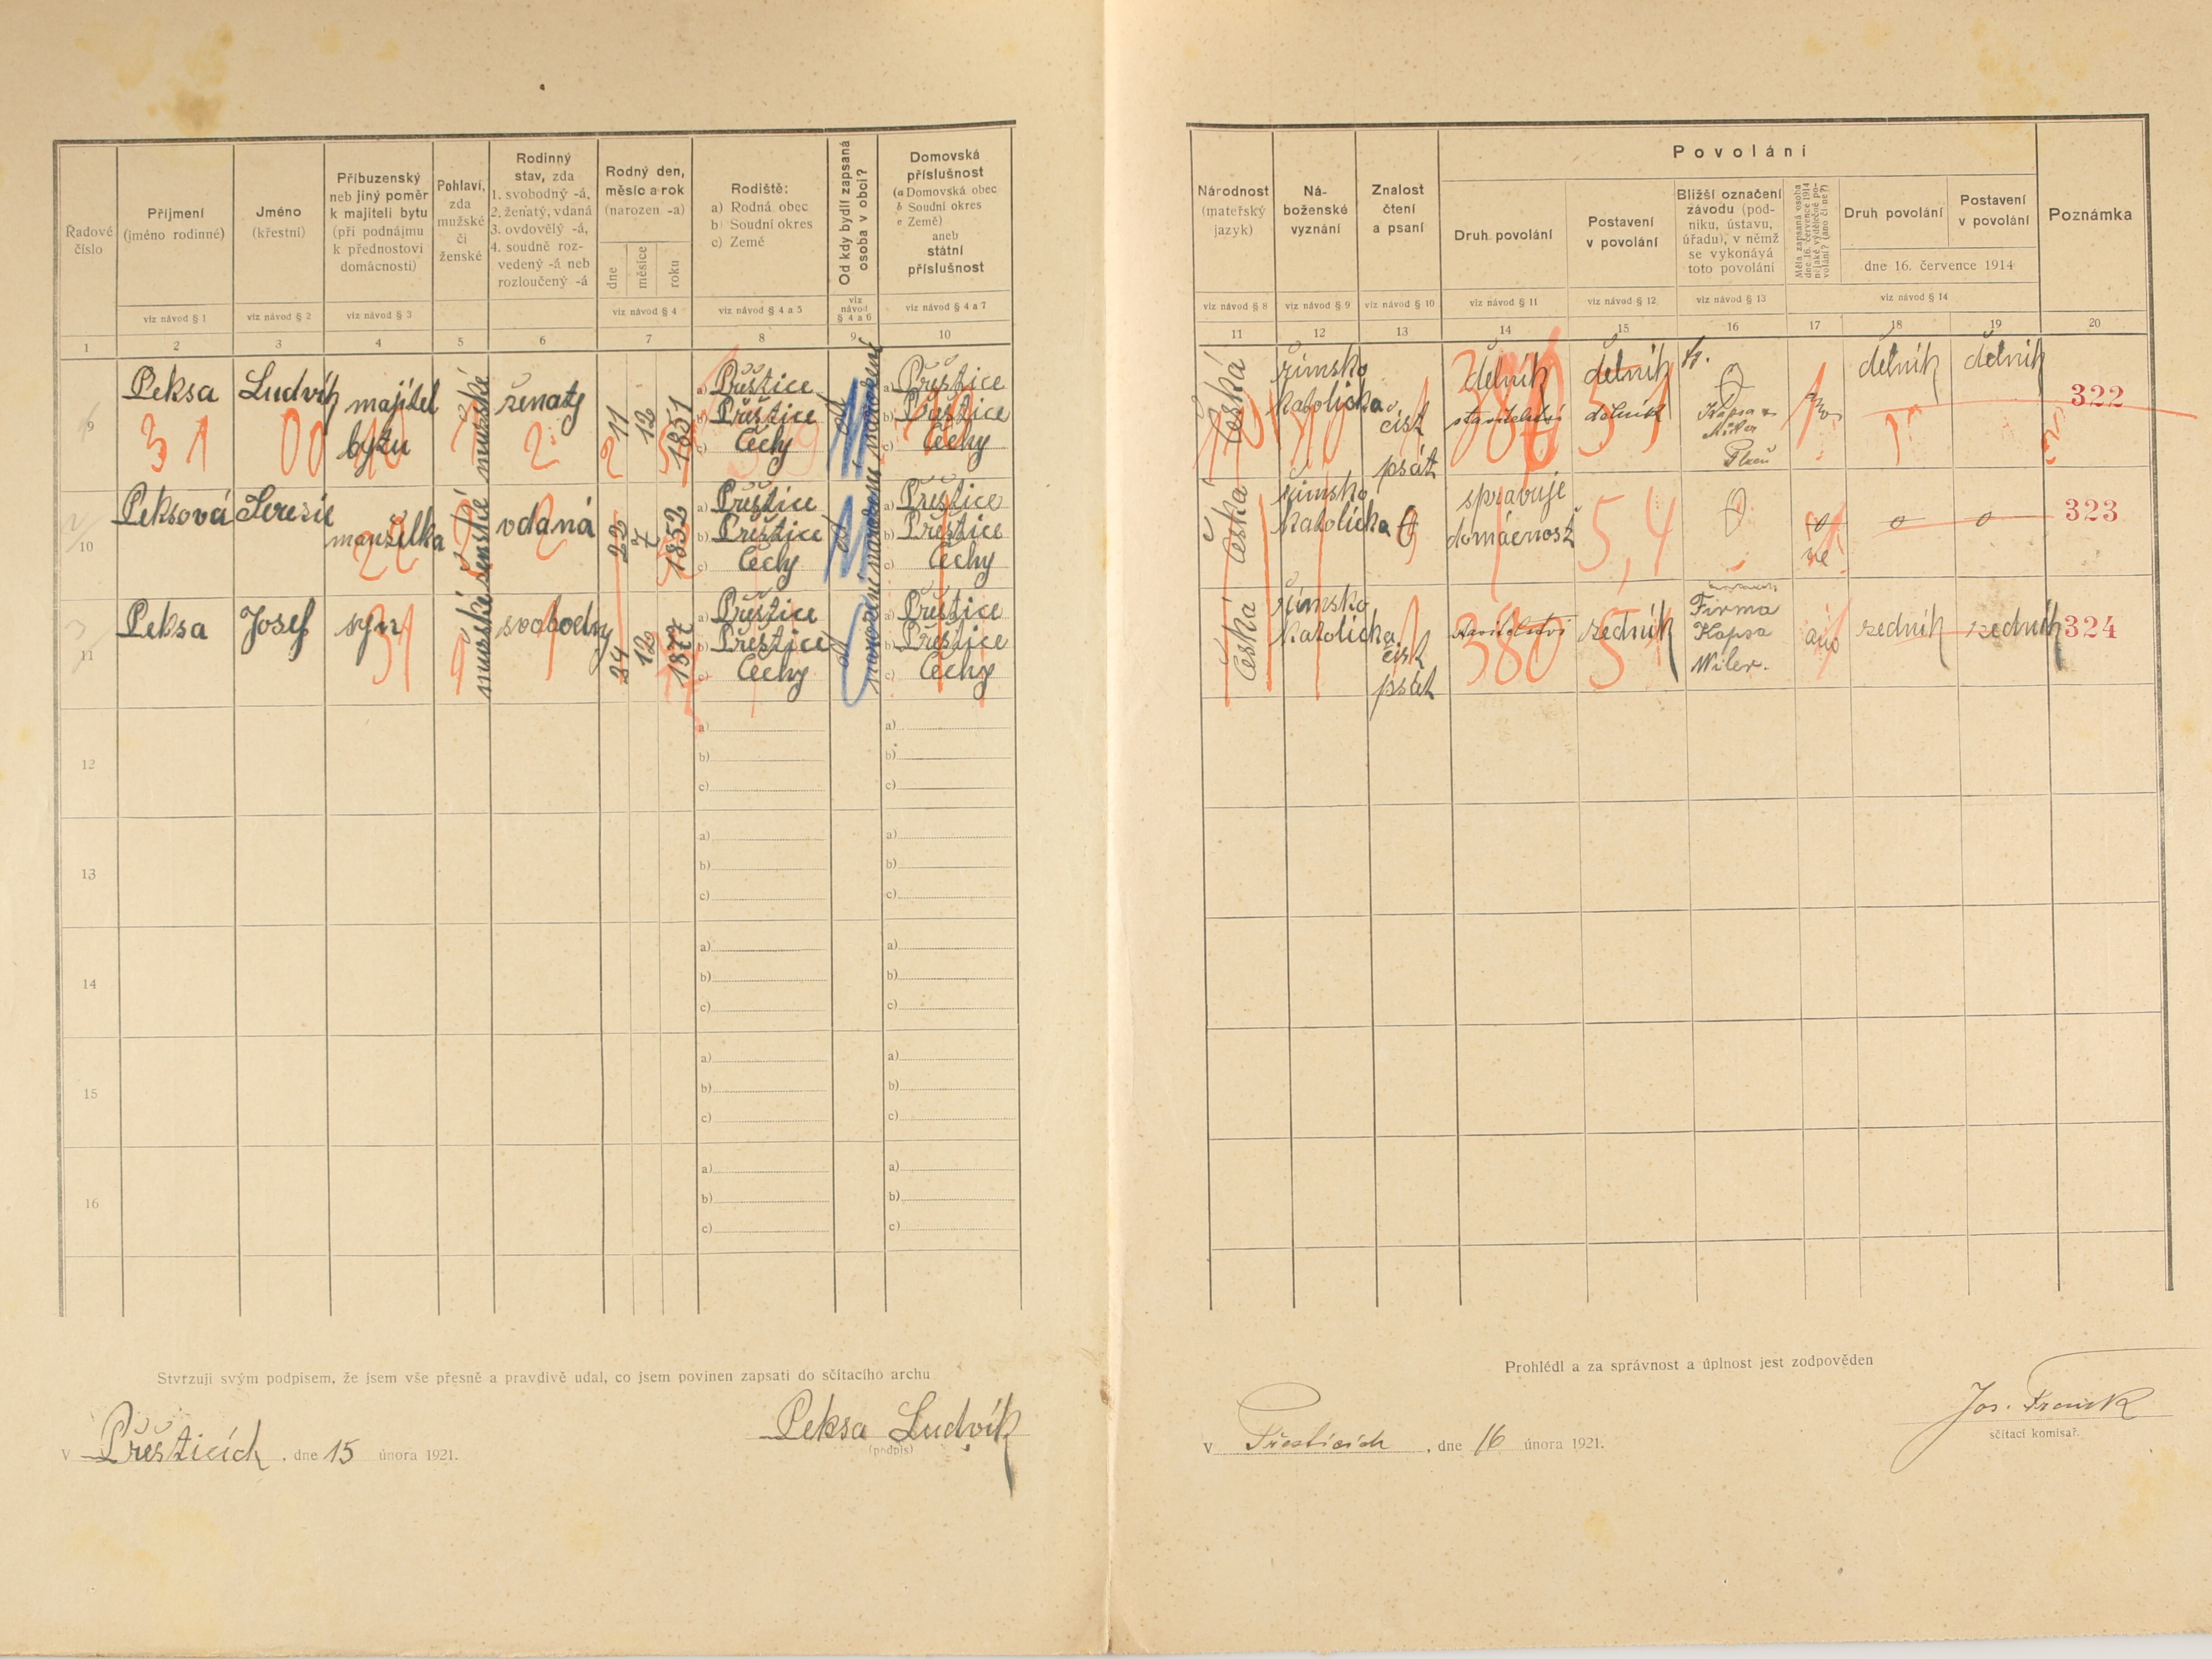 Řadové číslo
Příjmení (jméno rodinné)
viz návod § 1
Jméno (křestní)
viz návod § 2
Příbuzenský neb jiný poměr k majiteli bytu (při podnájmu k přednostovi domácnosti)
viz návod § 3
Pohlaví, zda mužské či ženské
Rodinný stav, zda 1. svobodný -á, 2. ženatý, vdaná 3. ovdovělý -á, 4. soudně rozvedený -á neb rozloučený -á
Rodný den, měsíc a rok (narozen -a)
dne
měsíce
roku
viz návod § 4
Rodiště:
a) Rodná obec
b) Soudní okres
c) Země
viz návod § 4 a 5
Od kdy bydlí zapsaná osoba v obci?
viz návod § 4 a 6
Domovská příslušnost
(a Domovská obec
b Soudní okres
c Země)
aneb
státní příslušnost
viz návod § 4 a 7
1 2 3 4 5 6 7 8 9 10
9 Peksa Ludvík majitel bytu mužské ženatý 11 12 1851
a) Přeštice
b) Přeštice
c) Čechy
od narození
a) Přeštice
b) Přeštice
c) Čechy
31 00
10 Peksová Terezie manželka ženské vdaná 22 7 1852
a) Přeštice
b) Přeštice
c) Čechy
od narození
a) Přeštice
b) Přeštice
c) Čechy
11 Peksa Josef syn mužské svobodný 24 12 1877
a) Přeštice
b) Přeštice
c) Čechy
od narození
a) Přeštice
b) Přeštice
c) Čechy
12
a) a)
b) b)
c) c)
13
a) a)
b) b)
c) c)
14
a) a)
b) b)
c) c)
15
a) a)
b) b)
c) c)
16
a) a)
b) b)
c) c)
Stvrzuji svým podpisem, že jsem vše přesně a pravdivě udal, co jsem povinen zapsati do sčítacího archu
V Přešticích, dne 15 února 1921.
Peksa Ludvík
(podpis)
Národnost (mateřský jazyk)
viz návod § 8
Náboženské vyznání
viz návod § 9
Znalost čtení a psaní
viz návod § 10
Povolání
Druh povolání
viz návod § 11
Postavení v povolání
viz návod § 12
Bližší označení závodu (podniku, ústavu, úřadu), v němž se vykonává toto povolání
viz návod § 13
Měla zapsaná osoba dne 16. července 1914 nějaké výdělečné povolání? (ano či ne?)
Druh povolání
Postavení v povolání
dne 16. července 1914
viz návod § 14
Poznámka
11 12 13 14 15 16 17 18 19 20
Česká římsko katolická číst psát dělník stavitelství dělník dělník Kapsa Plzeň ano dělník dělník 322
380 51
Česká římsko katolická 0 spravuje domácnost 0 ne 0 0 323
5,4
Česká římsko katolická číst psát stavitelství zedník Firma Kapsa Miler. ano zedník zedník 324
380 51
Prohlédl a za správnost a úplnost jest zodpověden
V Přešticích, dne 16 února 1921.
sčítací komisař.